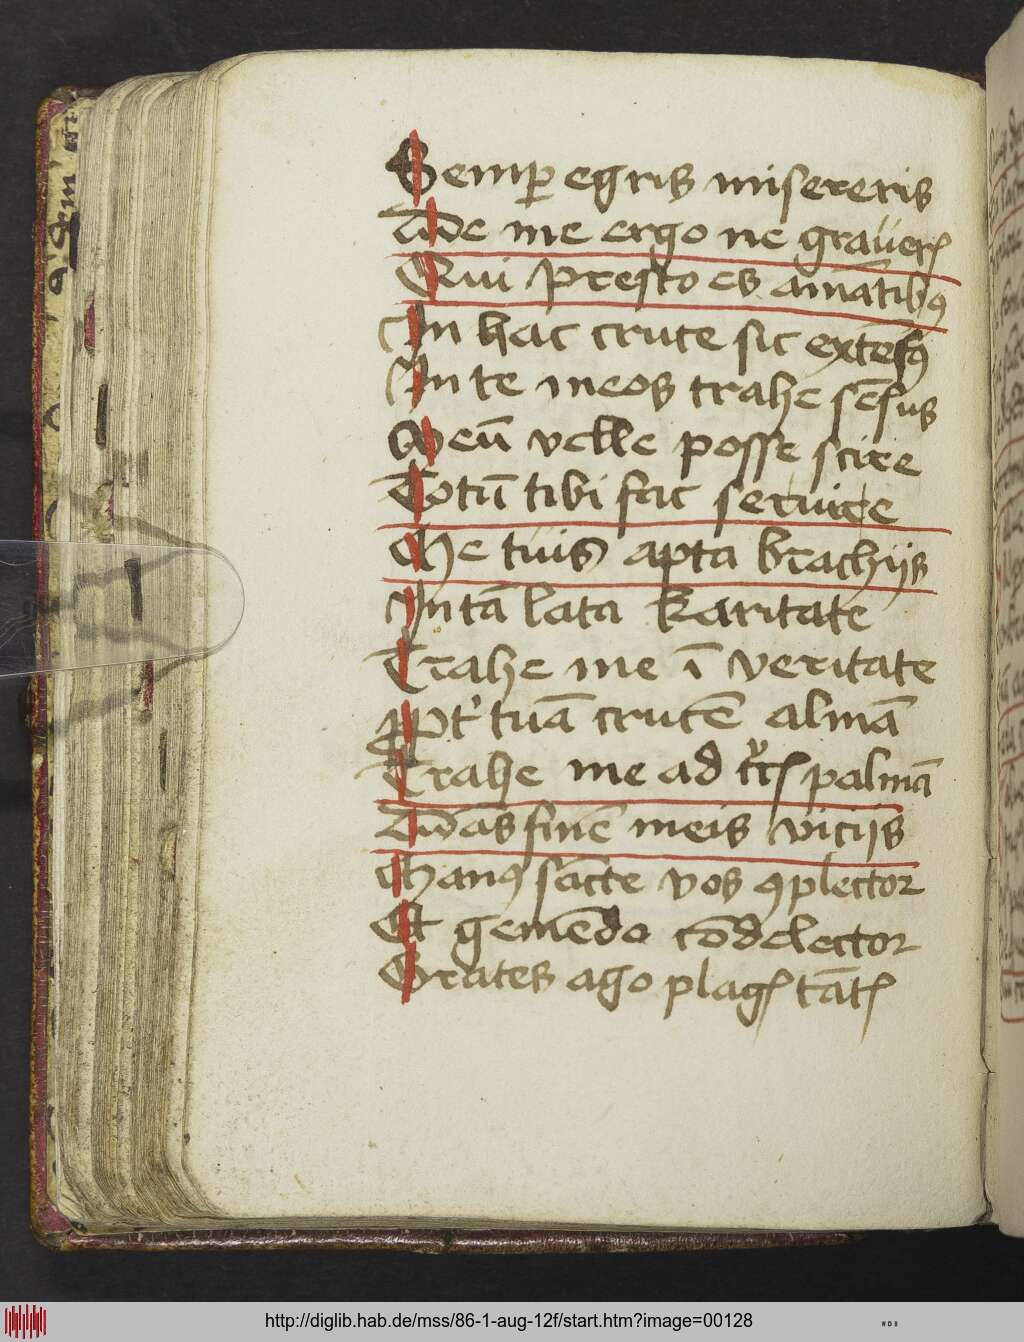 Semꝑ egris misereris
Ad me ergo ne graueris
Qui presto es amātibꝰ
In hac cruce sic extēsꝰ
In te meos trahe sēsus
Meū velle posse scire
Totū tibi fac seruire
Me tuis apta brachijs
In tā lata karitate
Trahe me ī veritate
ꝓpt' tuā crucē almā
Trahe me ad palmā
Dās finē meis vicijs
Manꝰ sācte vos ꝯplector
Et gemēdo cōdelector
Grates ago plagis tātis
http://diglib.hab.de/mss/86-1-aug-12f/start.htm?image=00128